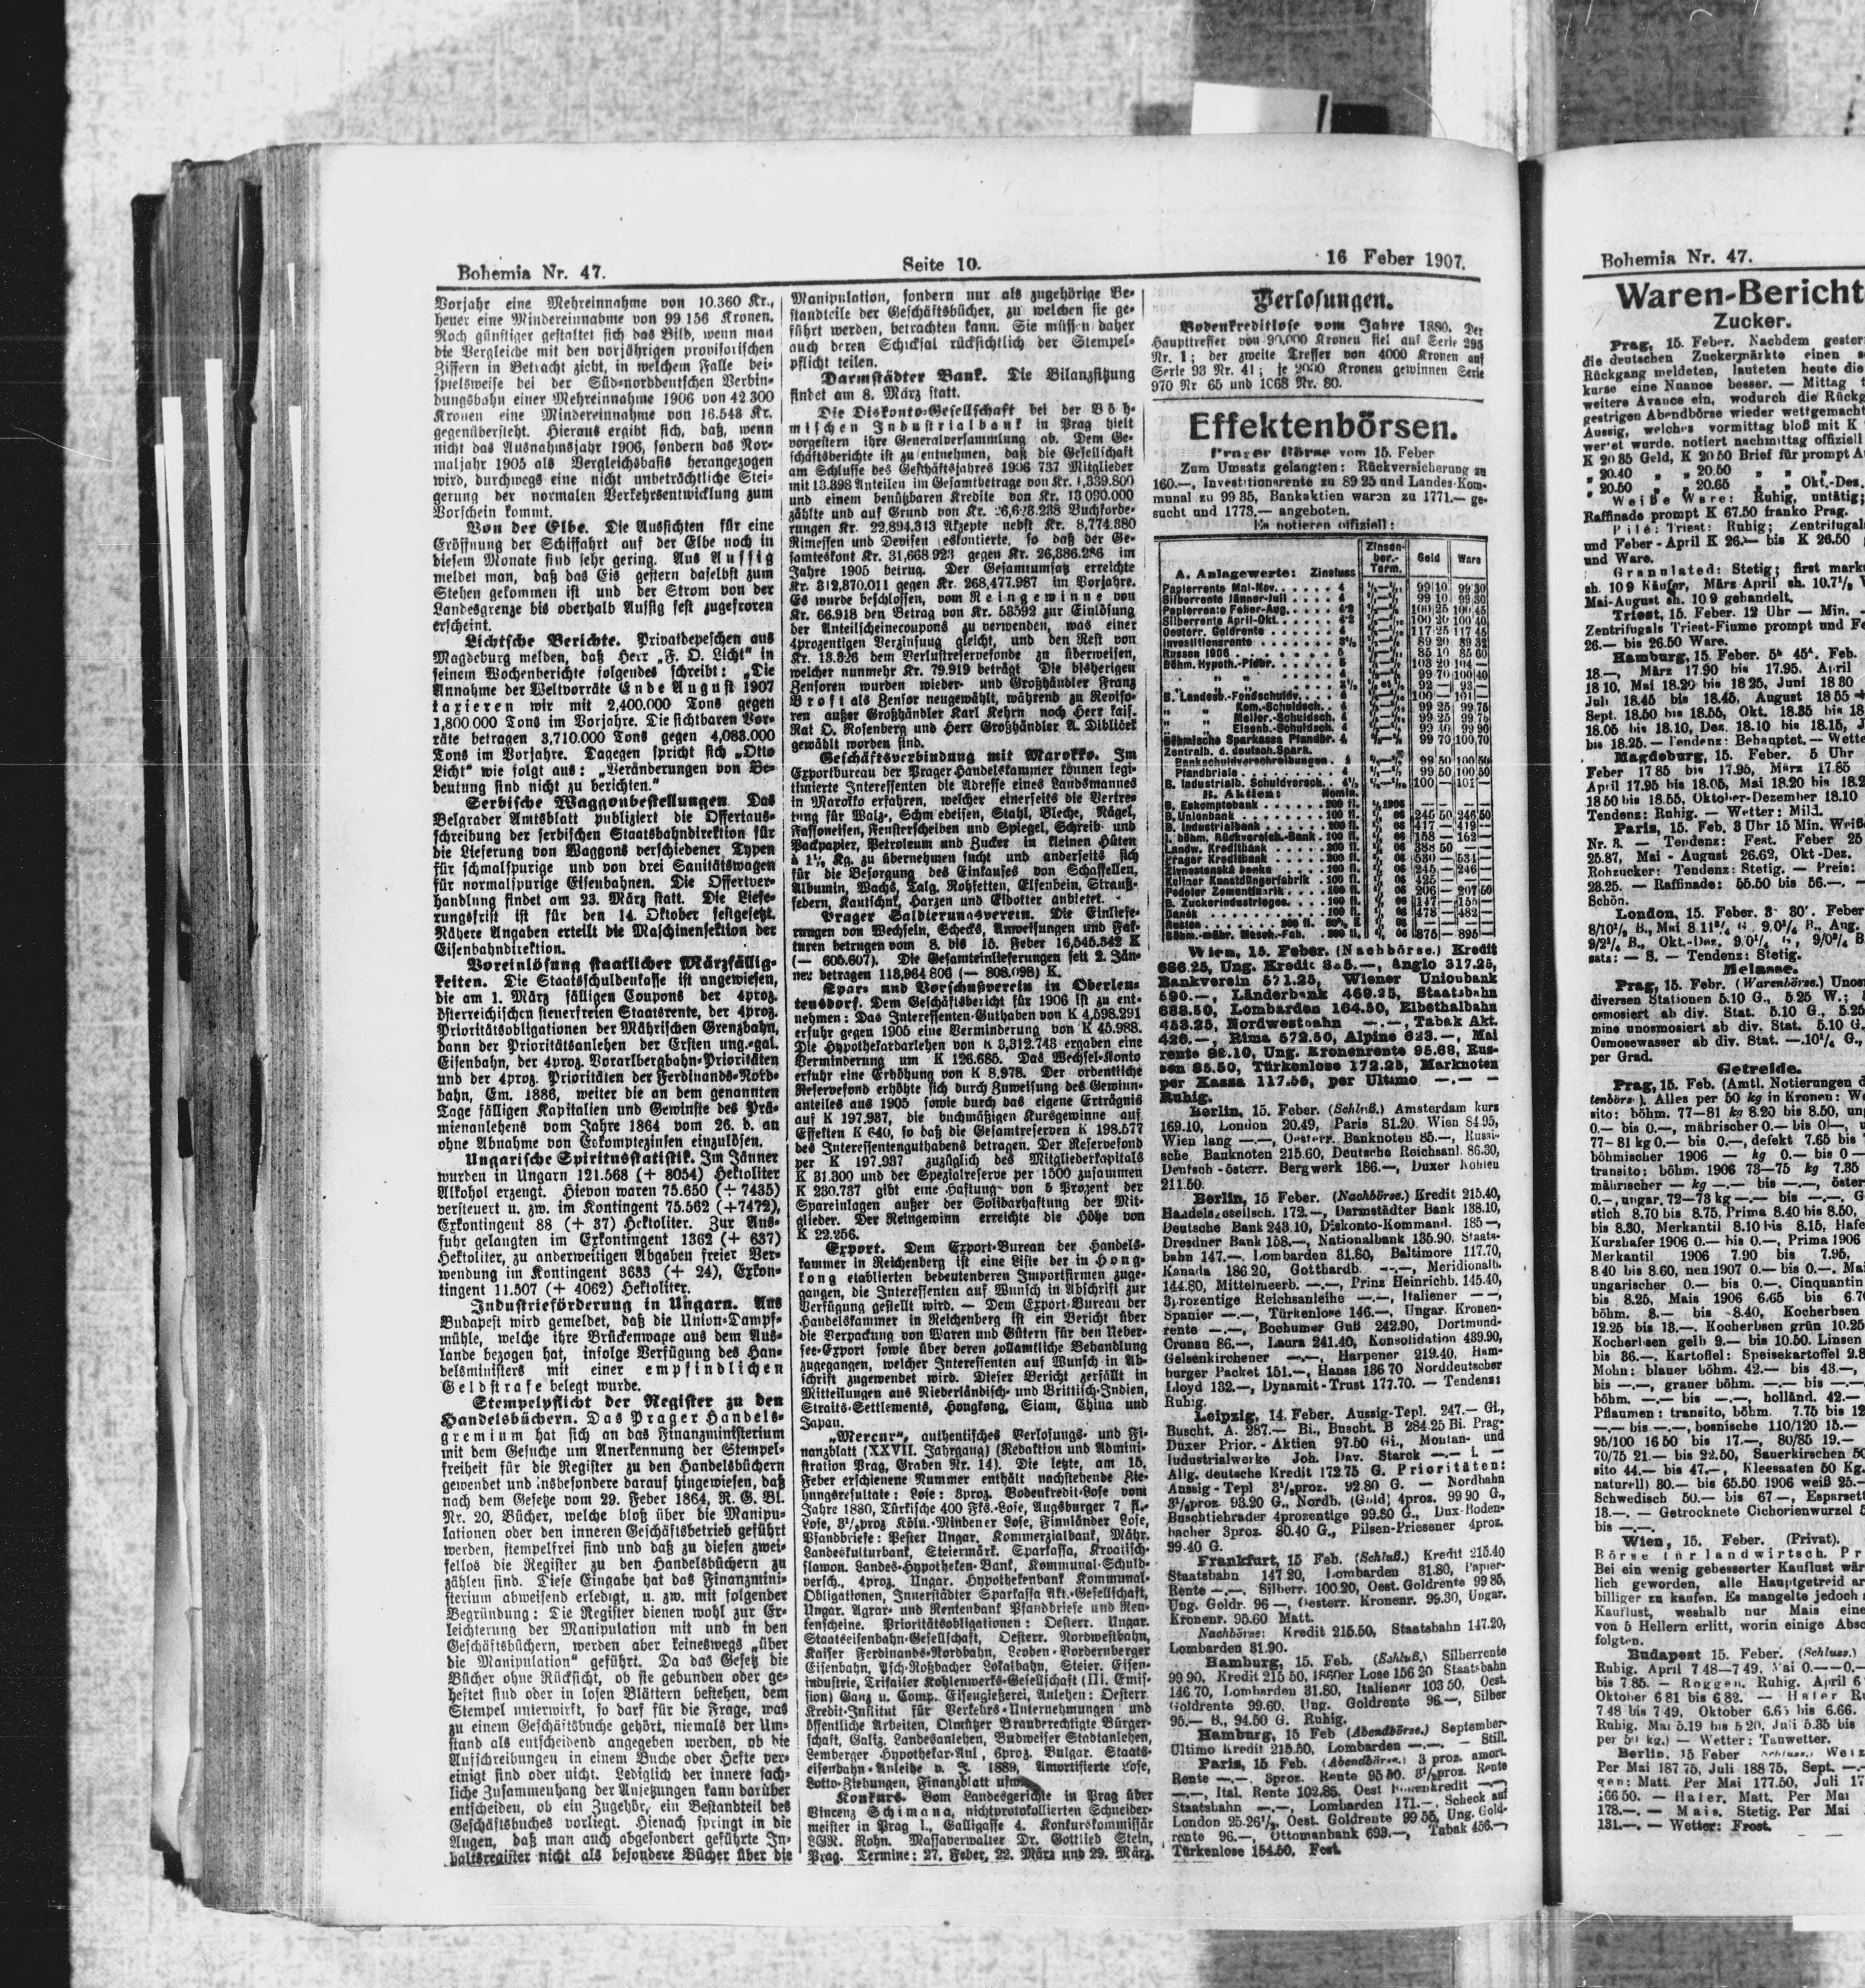 Bohemia Nr. 47.
Seite 10.
16 Feber 1907.
Vorjahr eine Mehreinnahme von 10.360 Kr.,
heuer eine Mindereinnahme von 99 156 Kronen.
Noch günstiger gestaltet sich das Bild, wenn man
die Vergleiche mit den vorjährigen provisorischen
Ziffern in Betracht zieht, in welchem Falle bei-
spielsweise bei der Süd-norddeutschen Verbin-
dungsbahn einer Mehreinnahme 1906 von 42 300
Kronen eine Mindereinnahme von 16.548 Kr.
gegenübersteht. Hieraus ergibt sich, daß, wenn
nicht das Ausnahmsjahr 1906, sondern das Nor-
maljahr 1905 als Vergleichsbasis herangezogen
wird, durchwegs eine nicht unbeträchtliche Stei-
gerung der normalen Verkehrsentwicklung zum
Vorschein kommt.
Von der Elbe. Die Aussichten für eine
Eröffnung der Schiffahrt auf der Elbe noch in
diesem Monate sind sehr gering. Aus Aussig
meldet man, daß das Eis gestern daselbst zum
Stehen gekommen ist und der Strom von der
Landesgrenze bis oberhalb Aussig fest zugefroren
erscheint.
Lichtsche Berichte. Privatdepeschen aus
Magdeburg melden, daß Herr „F. O. Licht" in
seinem Wochenberichte folgendes schreibt: „Die
Annahme der Weltvorräte Ende August 1907
taxieren wir mit 2,400.000 Tons gegen
1,800.000 Tons im Vorjahre. Die sichtbaren Vor-
räte betragen 3,710.000 Tons gegen 4,083.000
Tons im Vorjahre. Dagegen spricht sich „Otto
Licht" wie folgt aus: „Veränderungen von Be-
deutung sind nicht zu berichten."
Serbische Waggonbestellungen. Das
Belgrader Amtsblatt publiziert die Offertaus-
schreibung der serbischen Staatsbahndirektion für
die Lieferung von Waggons verschiedener Typen
für schmalspurige und von drei Sanitätswagen
für normalspurige Eisenbahnen. Die Offertver-
handlung findet am 23. März statt. Die Liefe-
rungsfrist ist für den 14. Oktober festgesetzt.
Nähere Angaben erteilt die Maschinensektion der
Eisenbahndirektion.
Voreinlösung staatlicher Märzfällig-
keiten. Die Staatsschuldenkasse ist angewiesen,
die am 1. März fälligen Coupons der 4proz.
österreichischen steuerfreien Staatsrente, der 4proz.
Prioritätsobligationen der Mährischen Grenzbahn,
dann der Prioritätsanlehen der Ersten ung.-gal.
Eisenbahn, der 4proz. Vorarlbergbahn-Prioritäten
und der 4proz. Prioritäten der Ferdinands-Nord-
bahn, Em. 1886, weiter die an dem genannten
Tage fälligen Kapitalien und Gewinste des Prä-
mienanlehens vom Jahre 1864 vom 26. d. an
ohne Abnahme von Eskomptezinsen einzulösen.
Ungarische Spiritusstatistik. Im Jänner
wurden in Ungarn 121.568 (+ 8054) Hektoliter
Alkohol erzeugt. Hievon waren 75.650 (+ 7435)
versteuert u. zw. im Kontingent 75.562 (+7472),
Exkontingent 88 (+ 37) Hektoliter. Zur Aus-
fuhr gelangten im Exkontingent 1362 (+ 637)
Hektoliter, zu anderweitigen Abgaben freier Ver-
wendung im Kontingent 3633 (+ 24), Exkon-
tingent 11.507 (+ 4062) Hektoliter.
Industrieförderung in Ungarn. Aus
Budapest wird gemeldet, daß die Union-Dampf-
mühle, welche ihre Brückenwage aus dem Aus-
lande bezogen hat, infolge Verfügung des Han-
delsministers mit einer empfindlichen
Geldstrafe belegt wurde.
Stempelpflicht der Register zu den
Handelsbüchern. Das Prager Handels-
gremium hat sich an das Finanzministerium
mit dem Gesuche um Anerkennung der Stempel-
freiheit für die Register zu den Handelsbüchern
gewendet und insbesondere darauf hingewiesen, daß
nach dem Gesetze vom 29. Feber 1864, R. G. Bl.
Nr. 20, Bücher, welche bloß über die Manipu-
lationen oder den inneren Geschäftsbetrieb geführt
werden, stempelfrei sind und daß zu diesen zwei-
fellos die Register zu den Handelsbüchern zu
zählen sind. Diese Eingabe hat das Finanzmini-
sterium abweisend erledigt, u. zw. mit folgender
Begründung: Die Register dienen wohl zur Er-
leichterung der Manipulation mit und in den
Geschäftsbüchern, werden aber keineswegs „über
die Manipulation" geführt. Da das Gesetz die
Bücher ohne Rücksicht, ob sie gebunden oder ge-
heftet sind oder in losen Blättern bestehen, dem
Stempel unterwirft, so darf für die Frage, was
zu einem Geschäftsbuche gehört, niemals der Um-
stand als entscheidend angegeben werden, ob die
Aufschreibungen in einem Buche oder Hefte ver-
einigt sind oder nicht. Lediglich der innere sach-
liche Zusammenhang der Ansetzungen kann darüber
entscheiden, ob ein Zugehör, ein Bestandteil des
Geschäftsbuches vorliegt. Hienach springt in die
Augen, daß man auch abgesondert geführte In-
haltsregister nicht als besondere Bücher über die
Manipulation, sondern nur als zugehörige Be-
standteile der Geschäftsbücher, zu welchen sie ge-
führt werden, betrachten kann. Sie müssen daher
auch deren Schicksal rücksichtlich der Stempel-
pflicht teilen.
Darmstädter Bank. Die Bilanzsitzung
findet am 8. März statt.
Die Diskonto-Gesellschaft bei der Böh-
mischen Industrialbank in Prag hielt
vorgestern ihre Generalversammlung ab. Dem Ge-
schäftsberichte ist zu entnehmen, daß die Gesellschaft
am Schlusse des Geschäftsjahres 1906 737 Mitglieder
mit 13.398 Anteilen im Gesamtbetrage von Kr. 1,339.800
und einem benützbaren Kredite von Kr. 13 090.000
zählte und auf Grund von Kr. Buchforde-
rungen Kr. 22,894.313 Akzepte nebst Kr. 8,774.380
Rimessen und Devisen eskontierte, so daß der Ge-
samteskont Kr. 31,668 923 gegen Kr. 26,386.286 im
Jahre 1905 betrug. Der Gesamtumsatz erreichte
Kr. 312,870.011 gegen Kr. 268,477.987 im Vorjahre.
Es wurde beschlossen, vom Reingewinne von
Kr. 66.918 den Betrag von Kr. 53592 zur Einlösung
der Anteilscheinecoupons zu verwenden, was einer
4prozentigen Verzinsung gleicht, und den Rest von
Kr. 13.326 dem Verlustreservefonde zu überweisen,
welcher nunmehr Kr. 79.919 beträgt Die bisherigen
Zensoren wurden wieder- und Großhändler Franz
Brost als Zensor neugewählt, während zu Reviso-
ren außer Großhändler Karl Kehrn noch Herr kais.
Rat O. Rosenberg und Herr Großhändler A. Dibliček
gewählt worden sind.
Geschäftsverbindung mit Marokko. Im
Exportbureau der Prager Handelskammer können legi-
timierte Interessenten die Adresse eines Landsmannes
in Marokko erfahren, welcher einerseits die Vertre-
tung für Walz-, Schmiedeisen, Stahl, Bleche, Nägel,
Fassoneisen, Fensterscheiben und Spiegel, Schreib- und
Packpapier, Petroleum und Zucker in kleinen Hüten
à 1½ Kg. zu übernehmen sucht und anderseits sich
für die Besorgung des Einkaufes von Schaffellen,
Albumin, Wachs, Talg, Rohfetten, Elfenbein, Strauß-
federn, Kautschuk, Harzen und Eidotter anbietet.
Prager Saldierungsverein. Die Einliefe-
rungen von Wechseln, Schecks, Anweisungen und Fak-
turen betrugen vom 8. bis 15. Feber 16,545.342 K
(— 605.607). Die Gesamteinlieferungen seit 2. Jän-
ner betragen 113,964 806 (— 808.098) K.
Spar- und Vorschußverein in Oberleu-
tensdorf. Dem Geschäftsbericht für 1906 ist zu ent-
nehmen: Das Interessenten-Guthaben von K 4,598.291
erfuhr gegen 1905 eine Verminderung von K 45.988.
Die Hypothekardarlehen von K 3,312.743 ergaben eine
Verminderung um K 126.685. Das Wechsel-Konto
erfuhr eine Erhöhung von K 8.978. Der ordentliche
Reservefond erhöhte sich durch Zuweisung des Gewinn-
anteiles aus 1905 sowie durch das eigene Erträgnis
auf K 197.937, die buchmäßigen Kursgewinne auf
Effekten K 640, so daß die Gesamtreserven K 198.577
des Interessentenguthabens betragen. Der Reservefond
per K 197.937 zuzüglich des Mitgliederkapitals
K 31.300 und der Spezialreserve per 1500 zusammen
K 230.737 gibt eine Haftung von 5 Prozent der
Spareinlagen außer der Solidarhaftung der Mit-
glieder. Der Reingewinn erreichte die Höhe von
K 22.256.
Export. Dem Export-Bureau der Handels-
kammer in Reichenberg ist eine Liste der in Hong-
kong etablierten bedeutenderen Importfirmen zuge-
gangen, die Interessenten auf Wunsch in Abschrift zur
Verfügung gestellt wird. — Dem Export-Bureau der
Handelskammer in Reichenberg ist ein Bericht über
die Verpackung von Waren und Gütern für den Ueber-
see-Export sowie über deren zollamtliche Behandlung
zugegangen, welcher Interessenten auf Wunsch in Ab-
schrift zugewendet wird. Dieser Bericht zerfällt in
Mitteilungen aus Niederländisch- und Brittisch-Indien,
Straits-Settlements, Hongkong, Siam, China und
Japan.
„Mercur", authentisches Verlosungs- und Fi-
nanzblatt (XXVII. Jahrgang) (Redaktion und Admini-
stration Prag, Graben Nr. 14). Die letzte, am 15.
Feber erschienene Nummer enthält nachstehende Zie-
hungsresultate: Lose: 3proz. Bodenkredit-Lose vom
Jahre 1880, Türkische 400 Fks.-Lose, Augsburger 7 fl.-
Lose, 3½proz Köln.-Mindener Lose, Finnländer Lose,
Pfandbriefe: Pester Ungar. Kommerzialbank, Mähr.
Landeskulturbank, Steiermärk. Sparkassa, Kroatisch-
slawon. Landes-Hypotheken-Bank, Kommunal-Schuld-
versch., 4proz. Ungar. Hypothekenbank Kommunal-
Obligationen, Innerstädter Sparkassa Akt.-Gesellschaft,
Ungar. Agrar- und Rentenbank Pfandbriefe und Ren-
tenscheine. Prioritätsobligationen: Oesterr. Ungar.
Staatseisenbahn-Gesellschaft, Oesterr. Nordwestbahn,
Kaiser Ferdinands-Nordbahn, Leoben-Vordernberger
Eisenbahn, Asch-Roßbacher Lokalbahn, Steier. Eisen-
industrie, Trifailer Kohlenwerks-Gesellschaft (III. Emis-
sion) Ganz u. Comp. Eisengießerei, Anlehen: Oesterr.
Kredit-Institut für Verkehrs-Unternehmungen und
öffentliche Arbeiten, Olmützer Brauberechtigte Bürger-
schaft, Galiz. Landesanlehen, Budweiser Stadtanlehen,
Lemberger Hypothekar-Anl., 6proz. Bulgar. Staats-
eisenbahn-Anleihe v. J. 1889, Amortisierte Lose,
Lotto-Ziehungen, Finanzblatt usw.
Konkurs. Vom Landesgerichte in Prag über
Vincenz Schimana, nichtprotokollierten Schneider-
meister in Prag I., Galligasse 4. Konkurskommissär
LGR. Rohn. Massaverwalter Dr. Gottlieb Stein,
Prag. Termine: 27. Feber, 22. März und 29. März.
Verlosungen.
Bodenkreditlose vom Jahre 1880. Der
Haupttreffer von 90.000 Kronen fiel auf Serie 295
Nr. 1; der zweite Treffer von 4000 Kronen auf
Serie 93 Nr. 41; je 2000 Kronen gewinnen Serie
970 Nr 65 und 1068 Nr. 80.
Effektenbörsen.
Prager Börse vom 15. Feber
Zum Umsatz gelangten: Rückversicherung zu
160.—, Investitionsrente zu 89 25 und Landes-Kom-
munal zu 99 35, Bankaktien waren zu 1771.— ge-
sucht und 1773.— angeboten.
Es notieren offiziell:
A. Anlagewerte: Zinsfuss Zinsen-ber.-Term. Geld Ware
Papierrente Mai-Nov. 4 99 10 99 30
Silberrente Jänner-Juli 4 99 10 99 30
Papierrente Feber-Aug. 4·2 100 25 100 45
Silberrente April-Okt. 4·2 100 20 100 40
Oesterr. Goldrente 4 117 25 117 45
Investitionsrente 3½ 89 20 89 32
Russen 1906 5 85 10 85 60
Böhm. Hypoth.-Pfdbr. 5 103 20 104 —
" " 4 99 70 100 40
" " 3½ 92 — 93 —
B. Landesb.-Fondschuldv. 4 100 — 101 —
" " Kom.-Schuldsch. 4 99 25 99 75
" " Melior.-Schuldsch. 4 99 25 99 75
" " Eisenb.-Schuldsch. 4 99 40 99 90
Böhmische Sparkasse Pfandbr. 4 99 70 100 70
Zentralb. d. deutsch. Spark.
Bankschuldverschreibungen 4 99 50 100 50
Pfandbriefe 4 99 50 100 50
B. Industrialb. Schuldversch. 4½ 100 — 101 —
B. Aktien: Nomin.
B. Eskomptebank 200 fl. — —
B. Unionbank 100 fl. 245 50 246 50
B. Industrialbank 200 fl. 417 — 419 —
I. böhm. Rückversich.-Bank 100 fl. 158 — 162 —
Landw. Kreditbank 200 fl. 388 50 —
Prager Kreditbank 200 fl. 530 — 531 —
Živnostenská banka 100 fl. 245 — 246 —
Koliner Kunstdüngerfabrik 100 fl. 425 — —
Podoler Zementfabrik 100 fl. 206 — 207 50
B. Zuckerindustrieges. 100 fl. 147 — 155 —
Daněk 100 fl. 478 — 482 —
Ruston 200 fl. — —
Böhm.-mähr. Masch.-Fab. 200 fl. 875 — 895 —
Wien, 15. Feber. (Nachbörse.) Kredit
686.25, Ung. Kredit —, Anglo 317.25,
Bankverein 571.25, Wiener Unionbank
590.—, Länderbank 469.25, Staatsbahn
688.50, Lombarden 164.50, Elbethalbahn
453.25, Nordwestbahn —.—, Tabak Akt.
426.—, Rima 572.50, Alpine 623.—, Mai
rente 99.10, Ung. Kronenrente 95.68, Rus-
sen 85.50, Türkenlose 172.25, Marknoten
per Kassa 117.56, per Ultimo —.— —
Ruhig.
Berlin, 15. Feber. (Schluß.) Amsterdam kurs
169.10, London 20.49, Paris 81.20. Wien 84 95,
Wien lang —.—, Oesterr. Banknoten 85.—, Russi-
sche Banknoten 215.60, Deutsche Reichsanl. 86.30,
Deutsch-österr. Bergwerk 186.—, Duxer Kohlen
211.50.
Berlin, 15 Feber. (Nachbörse.) Kredit 215.40,
Handelsgesellsch. 172.—, Darmstädter Bank 138.10,
Deutsche Bank 243.10, Diskonto-Kommand. 185—,
Dresdner Bank 158.—, Nationalbank 135.90. Staats-
bahn 147.—. Lombarden 31.80, Baltimore 117.70,
Kanada 186 20, Gotthardb. —.—, Meridionalb.
144.80, Mittelmeerb. —.—, Prinz Heinrichb. 145.40,
3prozentige Reichsanleihe —.—, Italiener — —,
Spanier —.—, Türkenlose 146.—, Ungar. Kronen-
rente —.—, Bochumer Guß 242.90, Dortmund-
Gronau 86.—, Laura 241.40, Konsolidation 439.90,
Gelsenkirchener —.—, Harpener 219.40, Ham-
burger Packet 151.—, Hansa 136 70 Norddeutscher
Lloyd 132.—, Dynamit-Trust 177.70. — Tendenz:
Ruhig.
Leipzig, 14. Feber. Aussig-Tepl. 247.— Gl.,
Buscht. A. 287.— Bi., Buscht. B 284.25 Bi. Prag-
Duxer Prior.-Aktien 97.50 Gi., Montan- und
Industrialwerke Joh. Dav. Starck —.— i. —
Allg. deutsche Kredit 172 75 G. Prioritäten:
Aussig-Tepl 3½proz. 92.80 G. — Nordbahn
3½proz. 93.20 G., Nordb. (Gold) 4proz. 99 90 G.,
Buschtiehrader 4prozentige 99.80 G., Dux-Boden-
bacher 3proz. 80.40 G., Pilsen-Priesener 4proz.
99.40 G.
Frankfurt, 15 Feb. (Schluß.) Kredit 215.40
Staatsbahn 147.20, Lombarden 31.80, Papier-
Rente —.—, Silberr. 100.20, Oest. Goldrente 99 85,
Ung. Goldr. 96 —, Oesterr. Kronenr. 99.30, Ungar.
Kronenr. 95.60 Matt.
Nachbörse: Kredit 215.50, Staatsbahn 147.20,
Lombarden 31.90.
Hamburg, 15. Feb. (Schluß.) Silberrente
99 90, Kredit 215 50, 1860er Lose 156 20 Staatsbahn
146.70, Lombarden 31.80, Italiener 103 50, Oest.
Goldrente 99.60, Ung. Goldrente 96.—, Silber
95.— B., 94.50 G. Ruhig.
Hamburg, 15 Feb (Abendbörse.) September-
Ultimo Kredit 215.50, Lombarden —.—. — Still.
Paris, 15. Feb. (Abendbörse.) 3 proz. amort.
Rente —.—. 3proz. Rente 95 50. 3½proz. Rente
—.—, Ital. Rente 102.85, Oest —.—
Staatsbahn —.—, Lombarden 171.—, Scheck auf
London 25.26½, Oest. Goldrente 99 55, Ung. Gold-
rente 96.—, Ottomanbank 693.—, Tabak 456.—,
Türkenlose 154.50. Fest.
Bohemia Nr. 47.
Waren-Bericht
Zucker.
Prag, 15. Feber. Nachdem gester
die deutschen Zuckermärkte einen
Rückgang meldeten, lauteten heute die
kurse eine Nuance besser. — Mittag
weitere Avance ein, wodurch die Rückg
gestrigen Abendbörse wieder wettgemacht
Aussig, welches vormittag bloß mit K
wertet wurde. notiert nachmittag offiziell
K 20 85 Geld, K 20 50 Brief für prompt A
„ 20.40 „ 20.50 „ „ „
„ 20.50 „ 20.65 „ „ Okt.-Dez.
Weiße Ware: Ruhig, untätig;
Raffinade prompt K 67.50 franko Prag.
Pilé: Triest: Ruhig; Zentrifugal
und Feber-April K 26.— bis K 26.50
und Ware.
Granulated: Stetig; first mark
sh. 10 9 Käufer, März April sh. 10.7½
Mai-August sh. 10 9 gehandelt.
Triest, 15. Feber. 12 Uhr — Min.
Zentrifugals Triest-Fiume prompt und Fe
26.— bis 26.50 Ware.
Hamburg, 15. Feber. 5 45 Feb.
18.—, März 17.90 bis 17.95. April
18 10, Mai 18.20 bis 18 25, Juni 18 30
Juli 18.45 bis 18.45, August 18 55
Sept. 18.50 bis 18.55, Okt. 18.35 bis 18
18.05 bis 18.10, Dez. 18.10 bis 18.15, J
bis 18.25. — Tendenz: Behauptet. — Wette
Magdeburg, 15. Feber. 5 Uhr
Feber 17 85 bis 17.95, März 17.85
April 17.95 bis 18.05, Mai 18.20 bis 18.2
18 50 bis 18.55, Oktober-Dezember 18.10
Tendenz: Ruhig. — Wetter: Mild.
Paris, 15. Feb. 3 Uhr 15 Min. Weiß
Nr. 3. — Tendenz: Fest. Feber 25
25.87, Mai - August 26.62, Okt-Dez.
Rohzucker: Tendenz: Stetig. — Preis:
28.25. — Raffinade: 55.50 bis 56.—. —
Schön.
London, 15. Feber. 3 30'. Feber
8/10¼ B., Mai 8.11¾ G. 9.0¼ B., Aug.
9/2¼ B., Okt.-Dez. 9/0¼ G., 9/0¾ B
sats: — S. — Tendenz: Stetig.
Melasse.
Prag, 15. Febr. (Warenbörse.) Unos
diversen Stationen 5.10 G., 5.25 W.;
osmosiert ab div. Stat. 5.10 G., 5.25
mine unosmosiert ab div. Stat. 5.10 G.
Osmosewasser ab div. Stat. —.10¼ G.,
per Grad.
Getreide.
Prag, 15. Feb. (Amtl. Notierungen d
tenbörs.). Alles per 50 kg in Kronen: We
sito: böhm. 77—81 kg 8.20 bis 8.50, ung
0.— bis 0.—, mährischer 0.— bis 0—, u
77—81 kg 0.— bis 0.—, defekt 7.65 bis
böhmischer 1906 — kg 0.— bis 0—
transito: böhm. 1906 73—75 kg 7.35
mährischer — kg —.— bis —.—, öster
0.—, ungar. 72—73 kg —.— bis —.—. G
stich 8.70 bis 8.75, Prima 8.40 bis 8.50,
bis 8.30, Merkantil 8.10 bis 8.15, Hafe
Kurzhafer 1906 0.— bis 0.—, Prima 1906
Merkantil 1906 7.90 bis 7.95,
8.40 bis 8.60, neu 1907 0.— bis 0.—. Mai
ungarischer 0.— bis 0.—, Cinquantin
bis 8.25, Mais 1906 6.65 bis 6.70
böhm. 8.— bis 8.40, Kocherbsen
12.25 bis 13.—, Kocherbsen grün 10.25
Kocherbsen gelb 9.— bis 10.50. Linsen
bis 36.—. Kartoffel: Speisekartoffel 2.8
Mohn: blauer böhm. 42.— bis 43.—,
bis —.—, grauer böhm. —.— bis —.—
böhm. —.— bis —.—, holländ. 42.—
Pflaumen: transito, böhm. 7.75 bis 12
—.— bis —.—, bosnische 110/120 15.—
95/100 16 50 bis 17.—, 80/85 19.—
70/75 21.— bis 22.50, Sauerkirschen 50
sito 44.— bis 47.—, Kleesaaten 50 Kg.
naturell) 80.— bis 65.50 1906 weiß 25.—
Schwedisch 50.— bis 67—, Esparsett
18.—. — Getrocknete Cichorienwurzel
bis —.—.
Wien, 15. Feber. (Privat).
Börse für landwirtsch. Pr
Bei ein wenig gebesserter Kauflust wär
lich geworden, alle Hauptgetreid ar
billiger zu kaufen. Es mangelte jedoch
Kauflust, weshalb nur Mais eine
von 5 Hellern erlitt, worin einige Absc
folgten.
Budapest 15. Feber. (Schluss.)
Ruhig. April 7 48—7 49, Mai 0.——0.—
bis 7.85. — Roggen. Ruhig. April 6
Oktober 6 81 bis 6 82. — Hafer Ru
7 48 bis 7 49, Oktober 6.65 bis 6.66.
Ruhig. Mai 5.19 bis 5 20, Juli 5.35 bis
per 50 kg.) — Wetter: Tauwetter.
Berlin, 15 Feber (Schluss.) Weiz
Per Mai 187 75, Juli 188 75, Sept. —.—
gen: Matt. Per Mai 177.50, Juli 17
166 50. — Hafer. Matt. Per Mai
178.—. — Mais. Stetig. Per Mai
131.—. — Wetter: Frost.